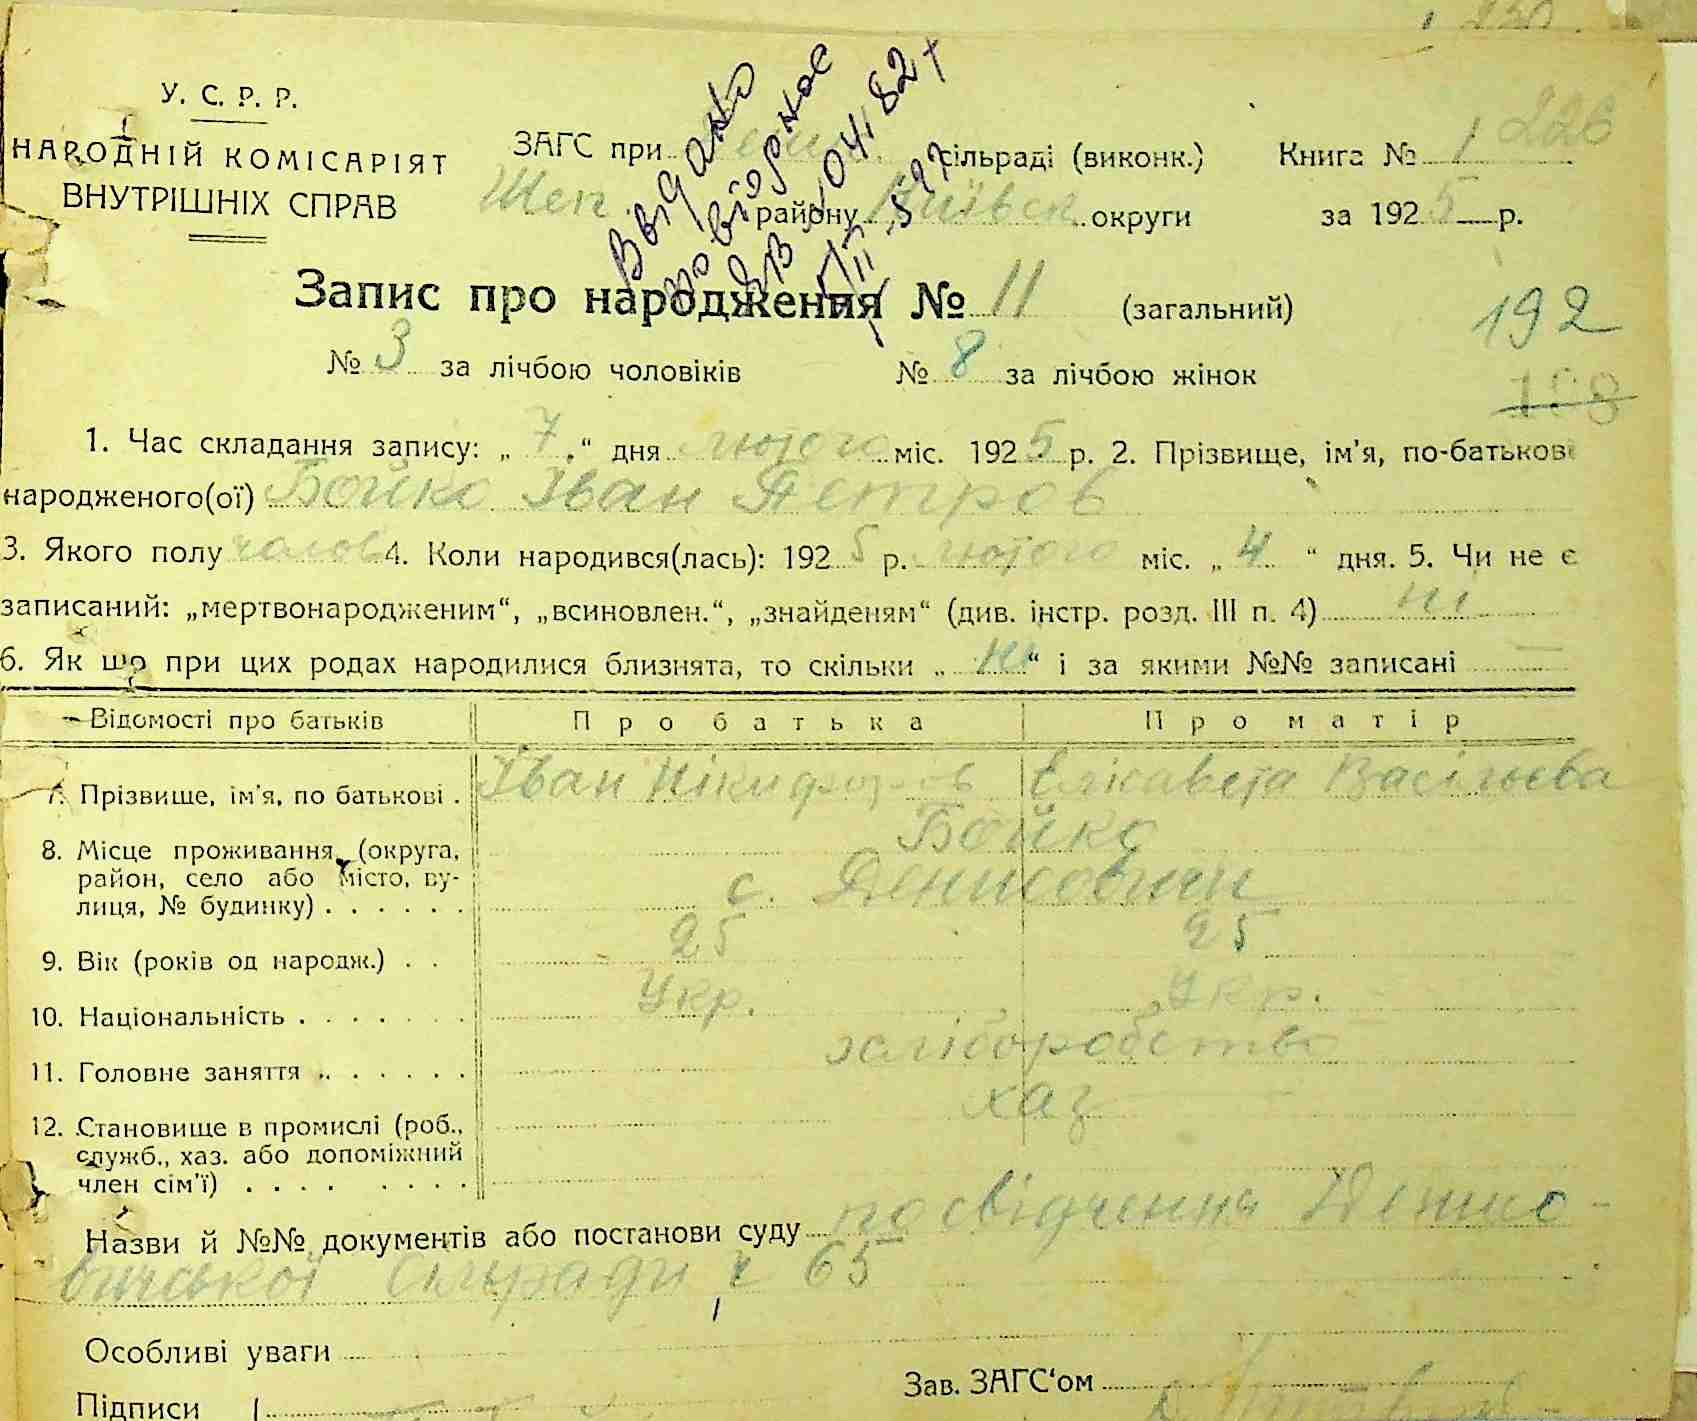 230
У. С. Р. Р.
НАРОДНІЙ КОМІСАРІЯТ
ВНУТРІШНІХ СПРАВ
ЗАГС при сільраді (виконк.) Книга № 1 226
Шеп. району Київск округи за 1925 р.
Видано
повторное
04.82 г
Запис про народження № 11 (загальний)
192
№ 3 за лічбою чоловіків № 8 за лічбою жінок
108
1. Час складання запису: „7“ дня лютого міс. 1925 р. 2. Прізвище, ім'я, по-батькові
народженого(ої) Бойко Іван Петров
3. Якого полу чолов 4. Коли народився(лась): 1925 р. лютого міс. „4“ дня. 5. Чи не є
записаний: „мертвонародженим“, „всиновлен.“, „знайденям“ (див. інстр. розд. III п. 4) ні
6. Як що при цих родах народилися близнята, то скільки „ні“ і за якими №№ записані —
Відомості про батьків Про батька Про матір
7. Прізвище, ім'я, по батькові . Іван Нікифоров Елісавета Васільєва
Бойко
8. Місце проживання (округа,
район, село або місто, ву-
лиця, № будинку) . . . . . . с. Денисовичи
9. Вік (років од народж.) . . 25 25
10. Національність . . . . . . . Укр. Укр.
11. Головне заняття . . . . . . . хліборобство
12. Становище в промислі (роб.,
служб., хаз. або допоміжний
член сім'ї) . . . . . . . . хаз
Назви й №№ документів або постанови суду посвідчення Денисо-
вичської сільради ч 65
Особливі уваги
Зав. ЗАГС'ом
Підписи